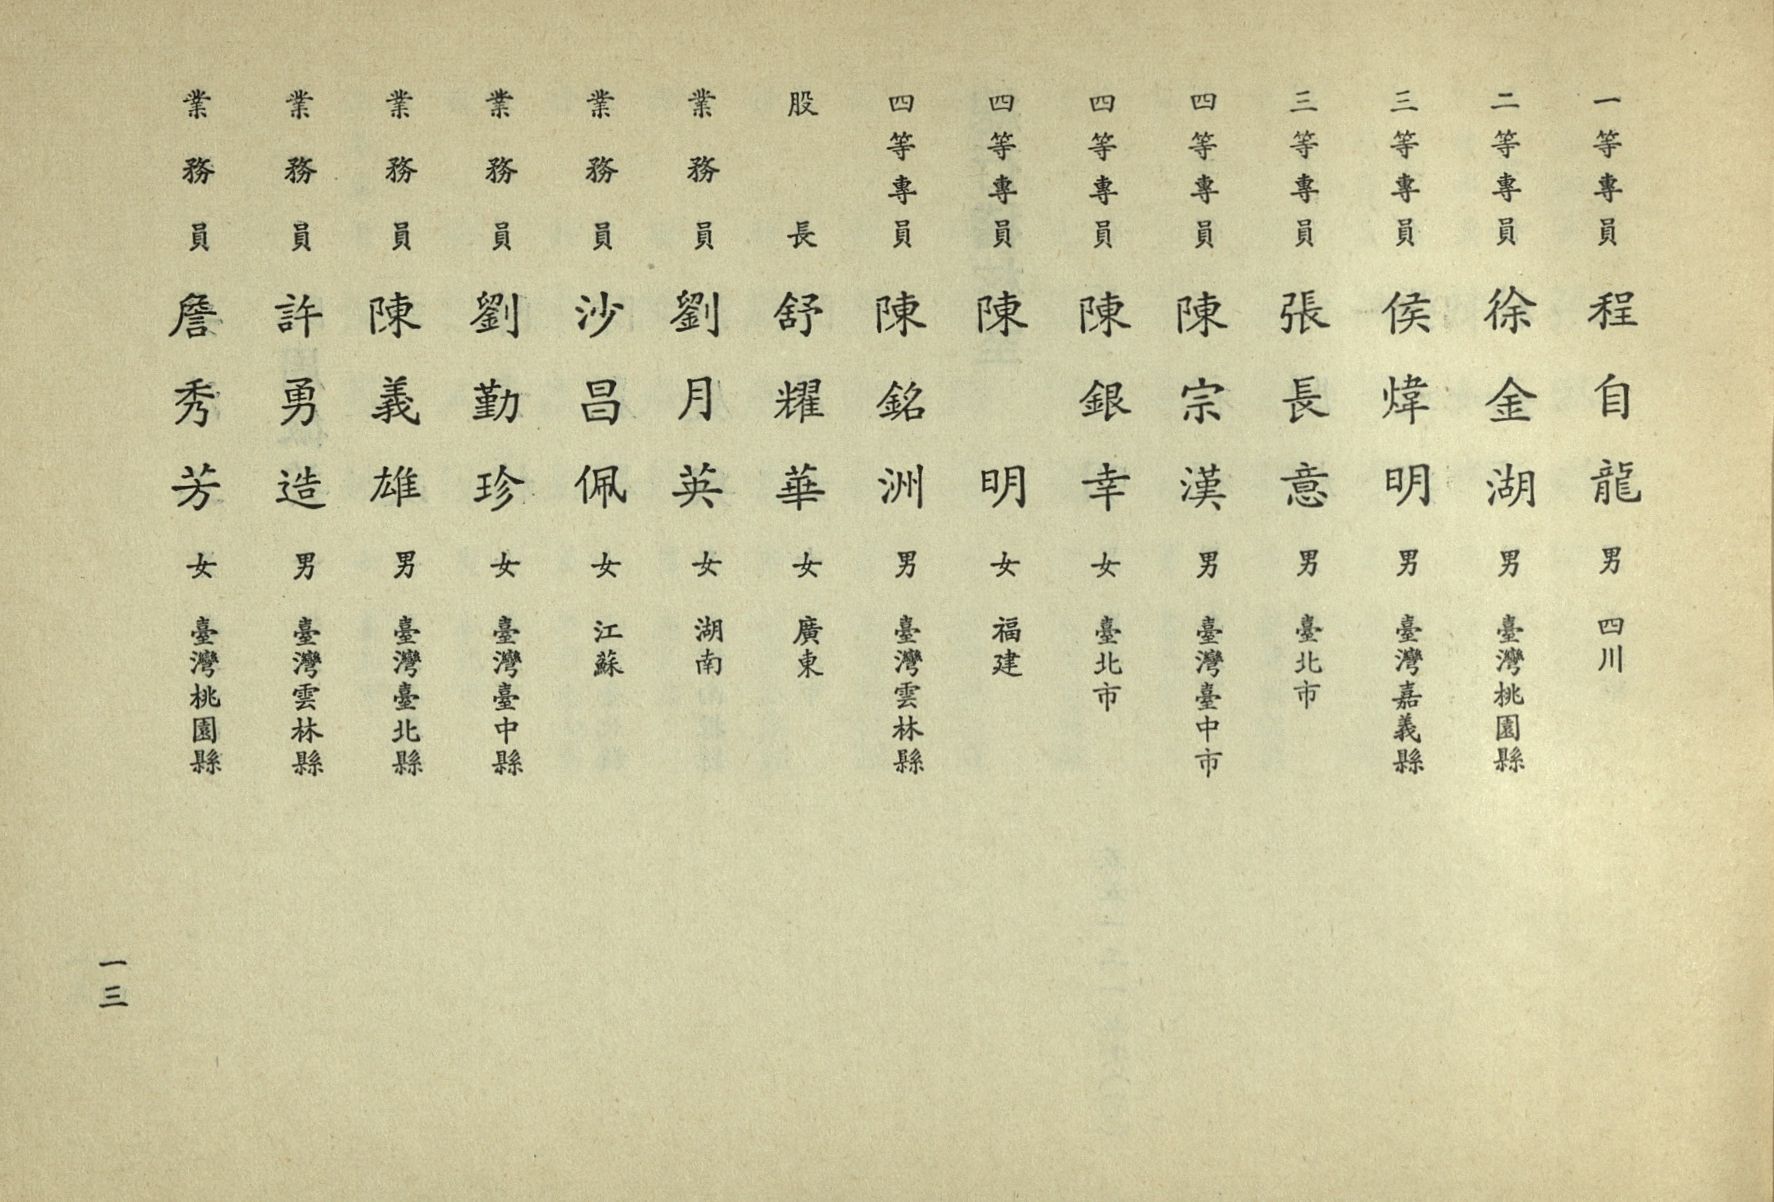 一等專員 程自龍 男 四川
二等專員 徐金湖 男 臺灣桃園縣
三等專員 侯煒明 男 臺灣嘉義縣
三等專員 張長意 男 臺北市
四等專員 陳宗漢 男 臺灣臺中市
四等專員 陳銀幸 女 臺北市
四等專員 陳明 女 福建
四等專員 陳銘洲 男 臺灣雲林縣
股長 舒耀華 女 廣東
業務員 劉月英 女 湖南
業務員 沙昌佩 女 江蘇
業務員 劉勤珍 女 臺灣臺中縣
業務員 陳義雄 男 臺灣臺北縣
業務員 許勇造 男 臺灣雲林縣
業務員 詹秀芳 女 臺灣桃園縣
一三